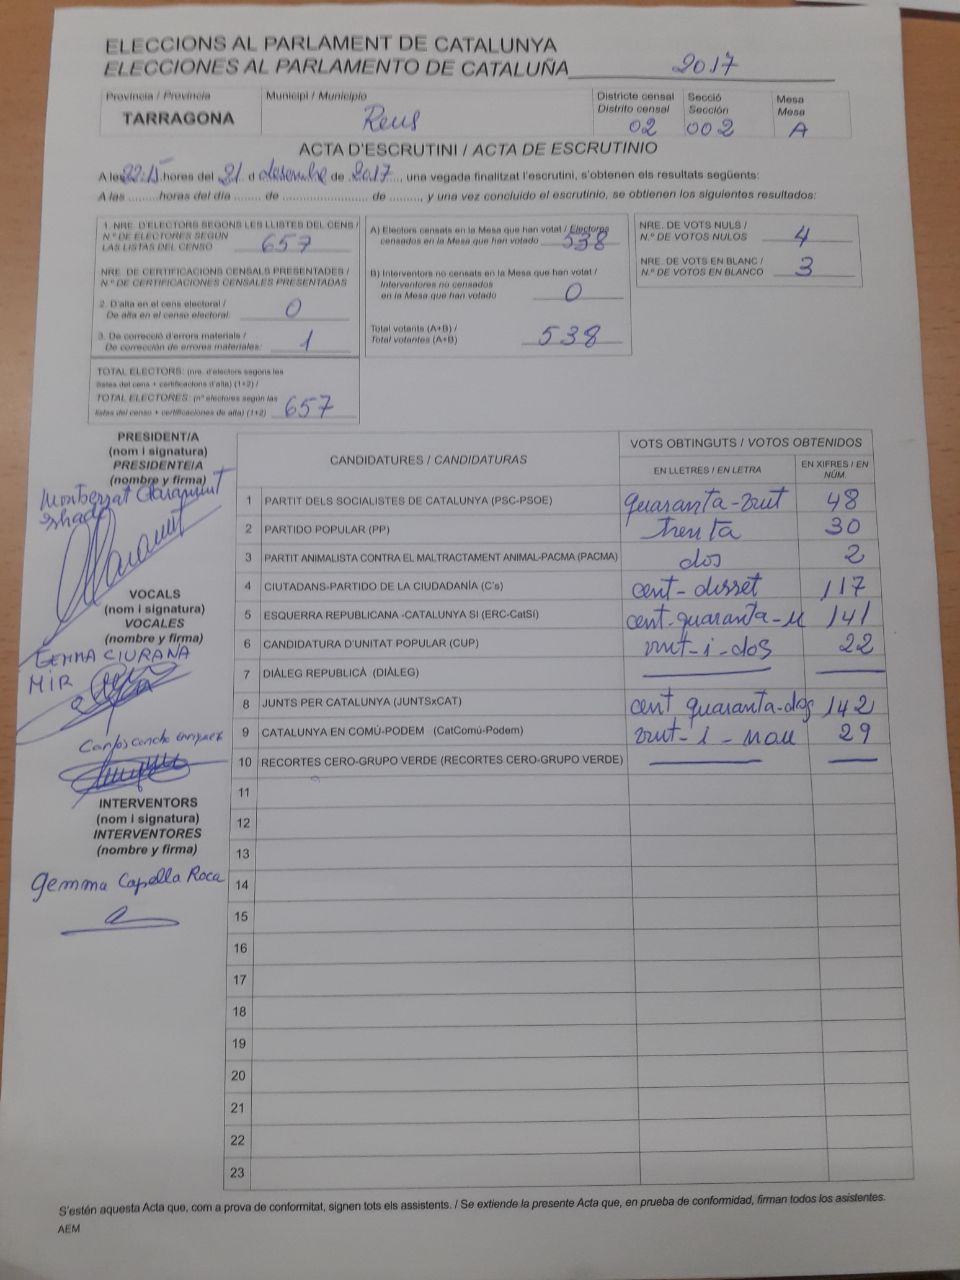 ELECCIONS AL PARLAMENT DE CATALUNYA
ELECCIONES AL PARLAMENTO DE CATALUÑA 2017
Província / Provincia
TARRAGONA
Municipi / Municipio
Reus
Districte censal
Distrito censal
02
Secció
Sección
002
Mesa
Mesa
A
ACTA D'ESCRUTINI / ACTA DE ESCRUTINIO
A les 22:15 hores del 21 d desembre de 2017, una vegada finalitzat l'escrutini, s'obtenen els resultats següents:
A las .........horas del día ........ de ......................... de ........, y una vez concluido el escrutinio, se obtienen los siguientes resultados:
1. NRE. D'ELECTORS SEGONS LES LLISTES DEL CENS /
N.º DE ELECTORES SEGÚN
LAS LISTAS DEL CENSO 657
NRE. DE CERTIFICACIONS CENSALS PRESENTADES /
N.º DE CERTIFICACIONES CENSALES PRESENTADAS
2. D'alta en el cens electoral /
De alta en el censo electoral: 0
3. De correcció d'errors materials /
De corrección de errores materiales: 1
TOTAL ELECTORS: (nre. d'electors segons les
llistes del cens + certificacions d'alta) (1+2) /
TOTAL ELECTORES: (nº electores según las
listas del censo + certificaciones de alta) (1+2) 657
A) Electors censats en la Mesa que han votat / Electores
censados en la Mesa que han votado 538
B) Interventors no censats en la Mesa que han votat /
Interventores no censados
en la Mesa que han votado 0
Total votants (A+B) /
Total votantes (A+B) 538
NRE. DE VOTS NULS /
N.º DE VOTOS NULOS 4
NRE. DE VOTS EN BLANC /
N.º DE VOTOS EN BLANCO 3
PRESIDENT/A
(nom i signatura)
PRESIDENTE/A
(nombre y firma)
Montserrat Claramunt
VOCALS
(nom i signatura)
VOCALES
(nombre y firma)
GEMMA CIURANA
MIR
Carlos concho enriquez
INTERVENTORS
(nom i signatura)
INTERVENTORES
(nombre y firma)
gemma Capella Roca
CANDIDATURES / CANDIDATURAS
VOTS OBTINGUTS / VOTOS OBTENIDOS
EN LLETRES / EN LETRA
EN XIFRES / EN
NÚM.
1 PARTIT DELS SOCIALISTES DE CATALUNYA (PSC-PSOE) quaranta-vuit 48
2 PARTIDO POPULAR (PP) trenta 30
3 PARTIT ANIMALISTA CONTRA EL MALTRACTAMENT ANIMAL-PACMA (PACMA) dos 2
4 CIUTADANS-PARTIDO DE LA CIUDADANÍA (C's) cent-disset 117
5 ESQUERRA REPUBLICANA -CATALUNYA SI (ERC-CatSí) cent-quaranta-u 141
6 CANDIDATURA D'UNITAT POPULAR (CUP) vint-i-dos 22
7 DIÀLEG REPUBLICÀ (DIÀLEG)
8 JUNTS PER CATALUNYA (JUNTSxCAT) cent quaranta-dos 142
9 CATALUNYA EN COMÚ-PODEM (CatComú-Podem) vint-i-nou 29
10 RECORTES CERO-GRUPO VERDE (RECORTES CERO-GRUPO VERDE)
11
12
13
14
15
16
17
18
19
20
21
22
23
S'estén aquesta Acta que, com a prova de conformitat, signen tots els assistents. / Se extiende la presente Acta que, en prueba de conformidad, firman todos los asistentes.
AEM